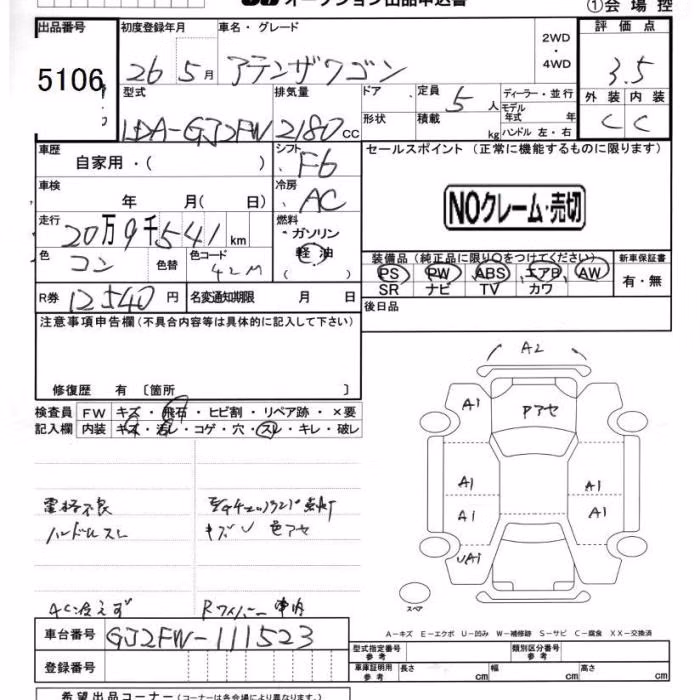 オークション出品申込書
①会場控
出品番号 初度登録年月 車名・グレード 2WD・4WD 評価点
5106 26年5月 アテンザワゴン 3.5
型式 排気量 ドア 定員 ディーラー・並行 外装 内装
LDA-GJ2FW 2180cc 形状 積載 5人 kg モデル年式 年 ハンドル 左・右 C C
車歴 自家用・( ) シフト F6 セールスポイント (正常に機能するものに限ります)
車検 年 月(日) 冷房 AC
NOクレーム・売切
走行 20万9千541km 燃料 ガソリン
軽油
( )
色 コン 色替 色コード 42M
装備品 (純正品に限り○をつけてください) 新車保証書
PS PW ABS エアB AW 有・無
SR ナビ TV カワ
R券 12540円 名変通知期限 月 日
後日品
注意事項申告欄 (不具合内容等は具体的に記入して下さい)
修復歴 有 〔箇所 〕
検査員 FW キズ・飛石・ヒビ割・リペア跡・×要
記入欄 内装 キズ・汚レ・コゲ・穴・スレ・キレ・破レ
電格不良
ハンドルスレ
キズU 色アセ
AC冷えず Rワイパー
A2
A1 Pアセ A1
A1 A1
A1 A1
UA1
スペア
A-キズ E-エクボ U-凹み W-補修跡 S-サビ C-腐食 XX-交換済
車台番号 GJ2FW-111523
登録番号
型式指定番号 参考 類別区分番号 参考
車庫証明用 参考 長さ cm 幅 cm 高さ cm
希望出品コーナー (コーナーは各会場により異なります)